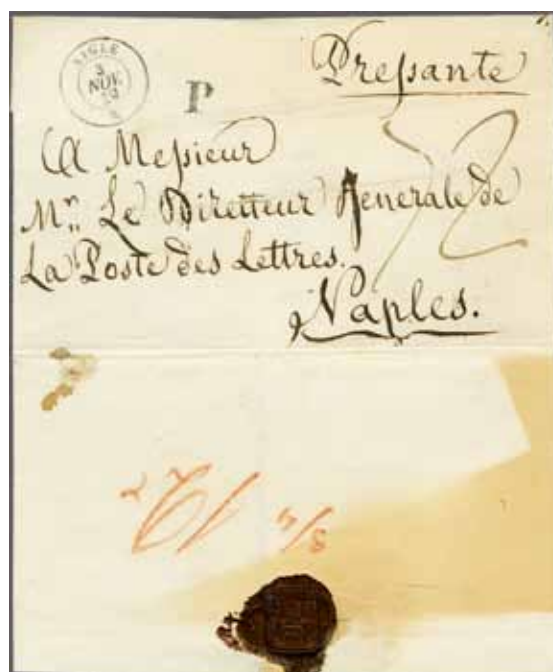 AIGLE
3
NOV.
P
Pressante
A Messieur
Mr. Le Diretteur Generale de
La Poste des Lettres.
Naples.
32